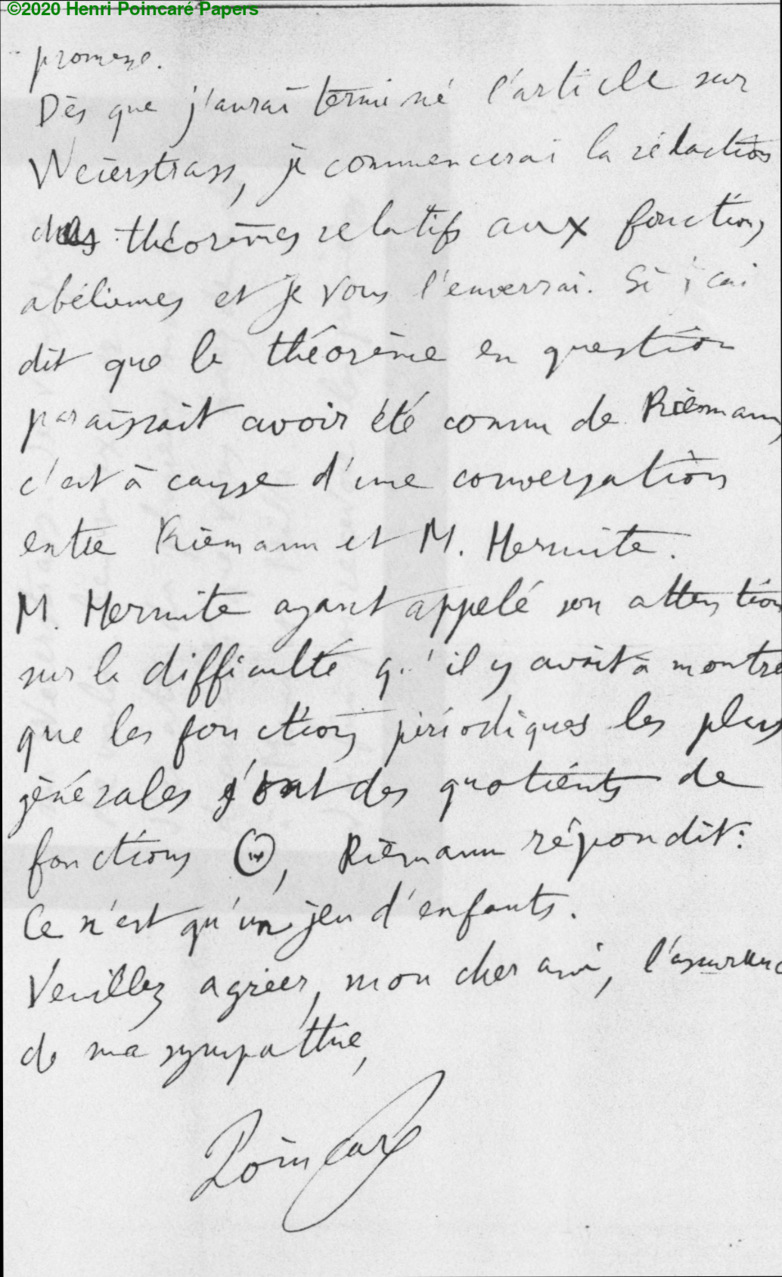 ©2020 Henri Poincaré Papers
promesse.
Dès que j'aurai terminé l'article sur
Weierstrass, je commencerai la rédaction
des théorèmes relatifs aux fonctions
abéliennes et je vous l'enverrai. Si j'ai
dit que le théorème en question
paraissait avoir été connu de Riemann,
c'est à cause d'une conversation
entre Riemann et M. Hermite.
M. Hermite ayant appelé son attention
sur la difficulté qu'il y avait à montre
que les fonctions périodiques les plus
générales sont des quotients de
fonctions Θ, Riemann répondit:
Ce n'est qu'un jeu d'enfants.
Veuillez agréer, mon cher ami, l'assuranc
de ma sympathie,
Poincaré